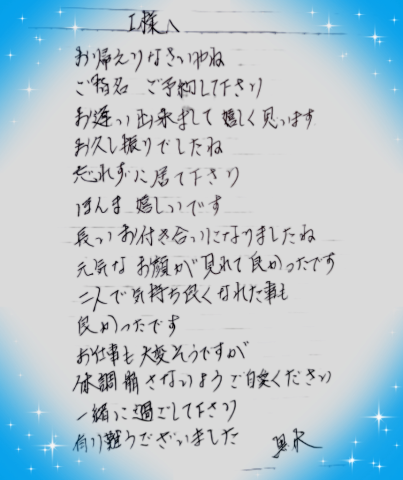 I様へ
お帰えりなさいませね
ご指名 ご予約して下さり
お逢い出来まして嬉しく思います
お久し振りでしたね
忘れずに居て下さり
ほんま嬉しいです
長いお付き合いになりましたね
元気なお顔が見れて良かったです
二人で気持ち良くなれた事も
良かったです
お仕事も大変そうですが
体調崩さないようご自愛ください
一緒に過ごして下さり
有り難うございました